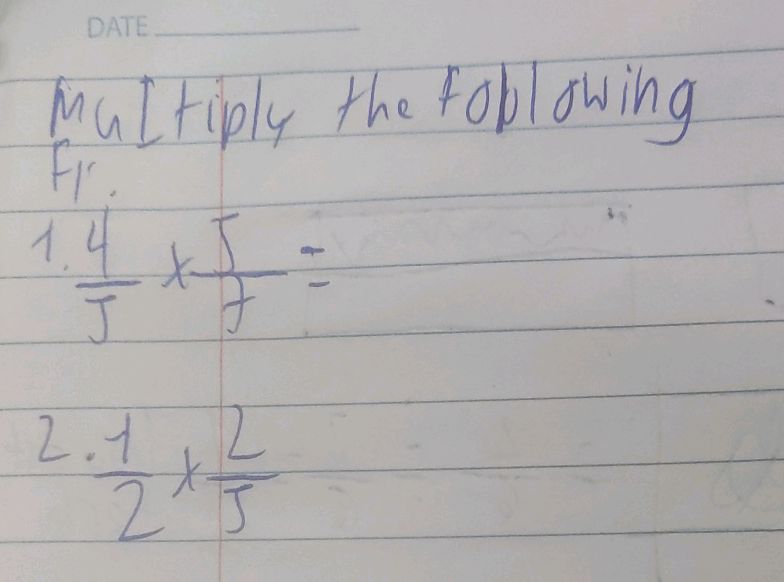 DATE
Multiply the following
Fr.
1. 4/5 × 5/7 =
2. 1/2 × 2/5